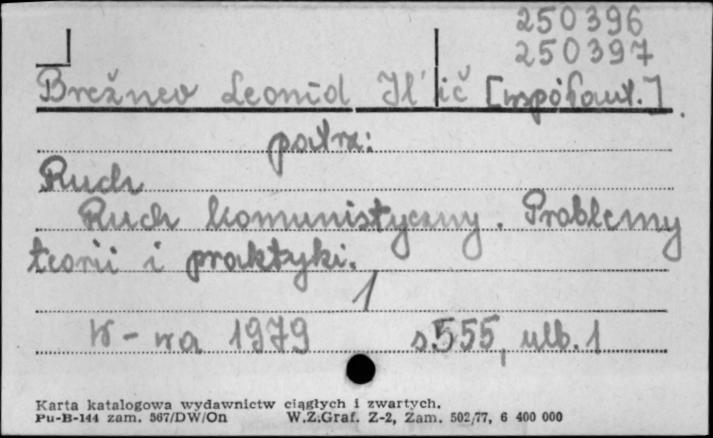 250396
250397
Brežnev Leonid Il'ič [współaut.].
patrz:
Ruch
Ruch komunistyczny. Problemy
teorii i praktyki.
1
W-wa 1979 s.555, ulb. 1
Karta katalogowa wydawnictw ciągłych i zwartych.
Pu-B-144 zam. 567/DW/On W.Z.Graf. Z-2, Zam. 502/77, 6 400 000